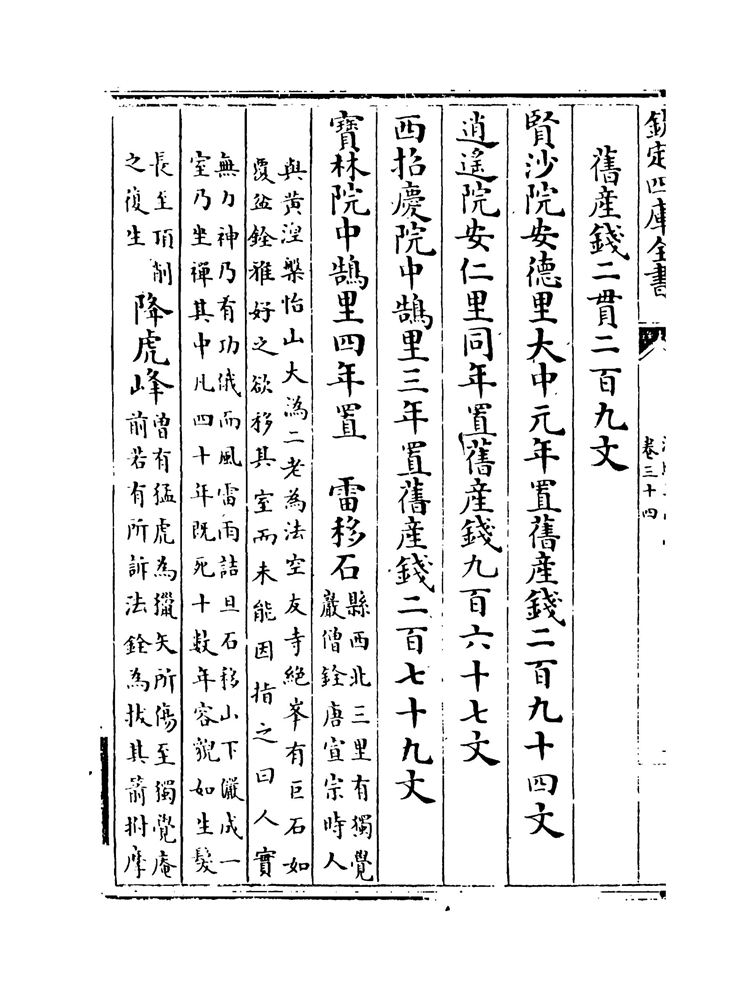 欽定四庫全書
卷三十四
舊產錢二貫二百九文
賢沙院安德里大中元年置舊產錢二百九十四文
逍遙院安仁里同年置舊產錢九百六十七文
西招慶院中鵠里三年置舊產錢二百七十九文
寶林院中鵠里四年置　雷移石
縣西北三里有獨覺
巖僧銓唐宣宗時人
與黃湼槃怡山大溈二老為法空友寺絶峯有巨石如
覆盆銓雅好之欲移其室而未能因指之曰人實
無力神乃有功俄而風雷雨詰旦石移山下儼成一
室乃坐禪其中凡四十年既死十數年容貌如生髮
長至頂削
之復生
降虎峰
曽有猛虎為獵矢所傷至獨覺庵
前若有所訴法銓為拔其箭拊摩